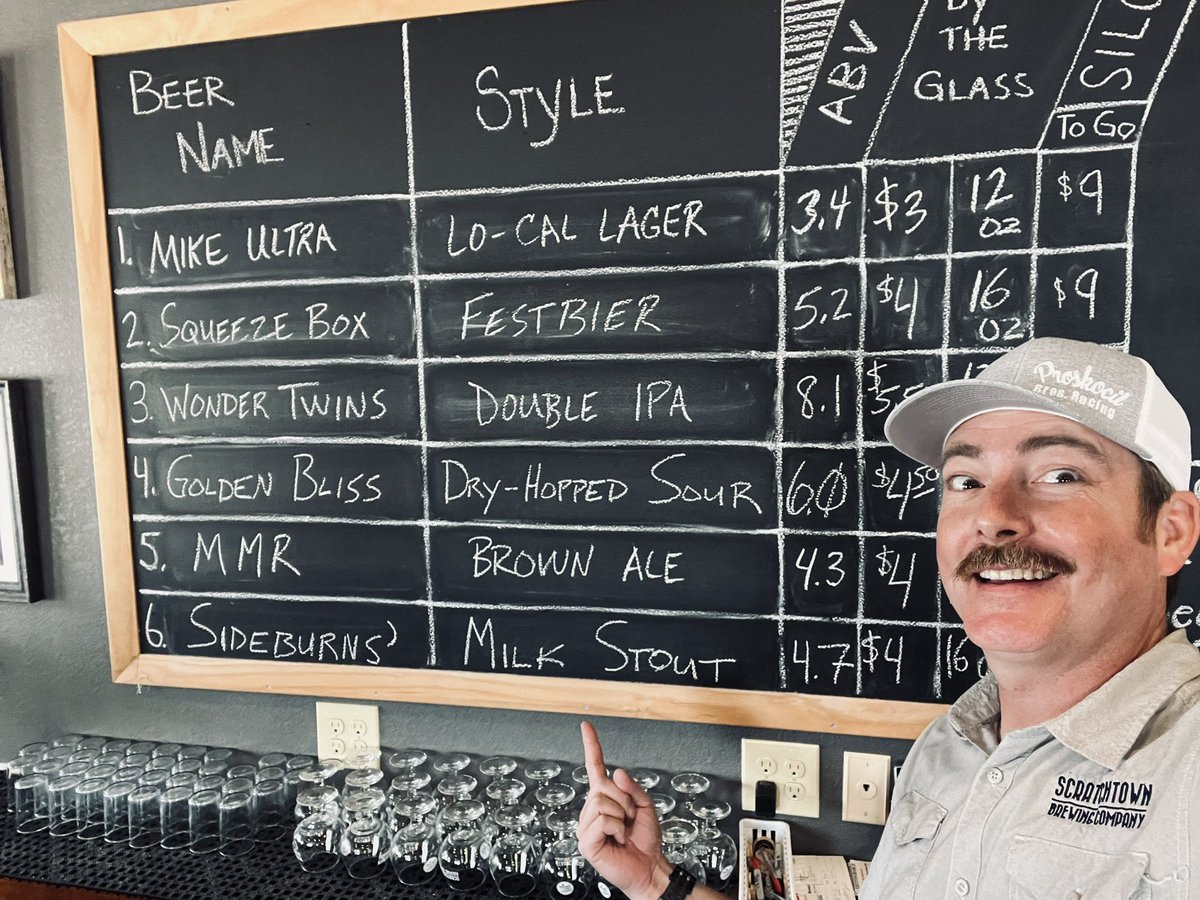 BEER NAME
STYLE
ABV
BY THE GLASS
TO GO
1. MIKE ULTRA LO-CAL LAGER 3.4 $3 12 OZ $9
2. SQUEEZE BOX FESTBIER 5.2 $4 16 OZ $9
3. WONDER TWINS DOUBLE IPA 8.1
4. GOLDEN BLISS DRY-HOPPED SOUR 6.0 $4.50
5. MMR BROWN ALE 4.3 $4
6. SIDEBURNS' MILK STOUT 4.7 $4 16
Proskocil
Bros. Racing
SCRATCHTOWN
BREWING COMPANY